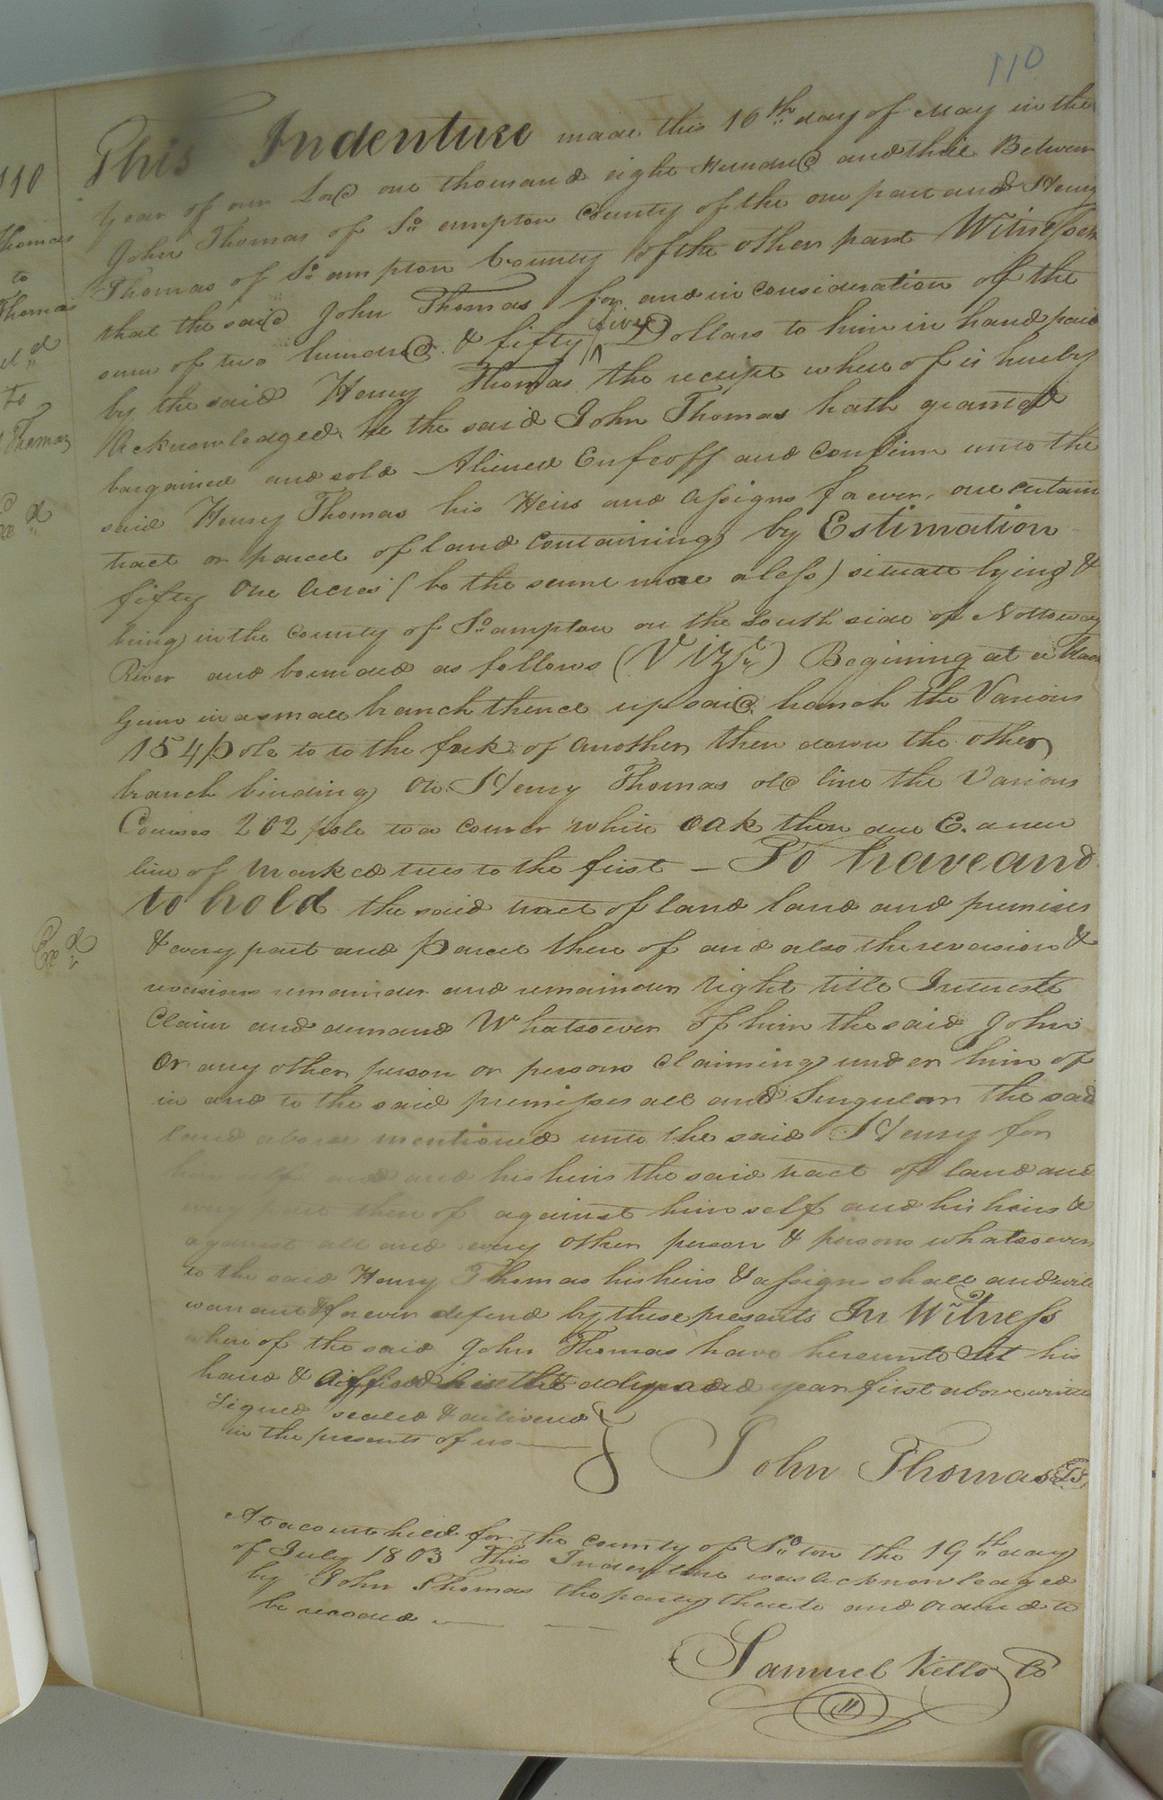 110
110
Thomas
to
Thomas
d
To
Thomas
Exd
Exd
This Indenture made this 16th day of May in the
year of our Lord one thousand eight Hundred and three Between
John Thomas of So ampton County of the one part and Henry
Thomas of So ampton County of the other part Witnesseth
that the said John Thomas for and in consideration of the
sum of two hundred & fifty five Dollars to him in hand paid
by the said Henry Thomas the receipt where of is hereby
Acknowledged he the said John Thomas hath granted
bargained and sold Aliened Enfeoff and Confirm unto the
said Henry Thomas his Heirs and assigns forever, one certain
tract or parcel of land containing by Estimation
fifty One acres (be the same more or less) situate lying &
being in the County of So ampton on the South side of Nottoway
River and bounded as follows (Vizt) Begining at a black
Gum in a small branch thence up said branch the Various
154 pole to to the fork of another, then down the other
branch binding On Henry Thomas old line the Various
Courses 202 pole to a corner white oak then due E. a new
line of marked trees to the first – To have and
to hold the said tract of land land and premises
& every part and parcel there of and also the reversion &
reversions remainder and remainders right title Interest
Claim and demand Whatsoever of him the said John
Or any other person or persons claiming under him of
in and to the said premisses all and Singular the said
land above mentioned unto the said Henry for
and his heirs the said tract of land and
every part there of against him self and his heirs &
against all and every other person & persons whatsoever
to the said Henry Thomas his heirs & assigns shall and will
warrant & forever defend by these presents In Witness
where of the said John Thomas have hereunto set his
hand & affixed his day and year first above written
Signed sealed & delivered
in the presents of us
John Thomas LS
At a court held for the County of So ton the 19th day
of July 1803 This Indenture was acknowledged
by John Thomas the party thereto and ordered to
be recorded
Samuel Kello Cl